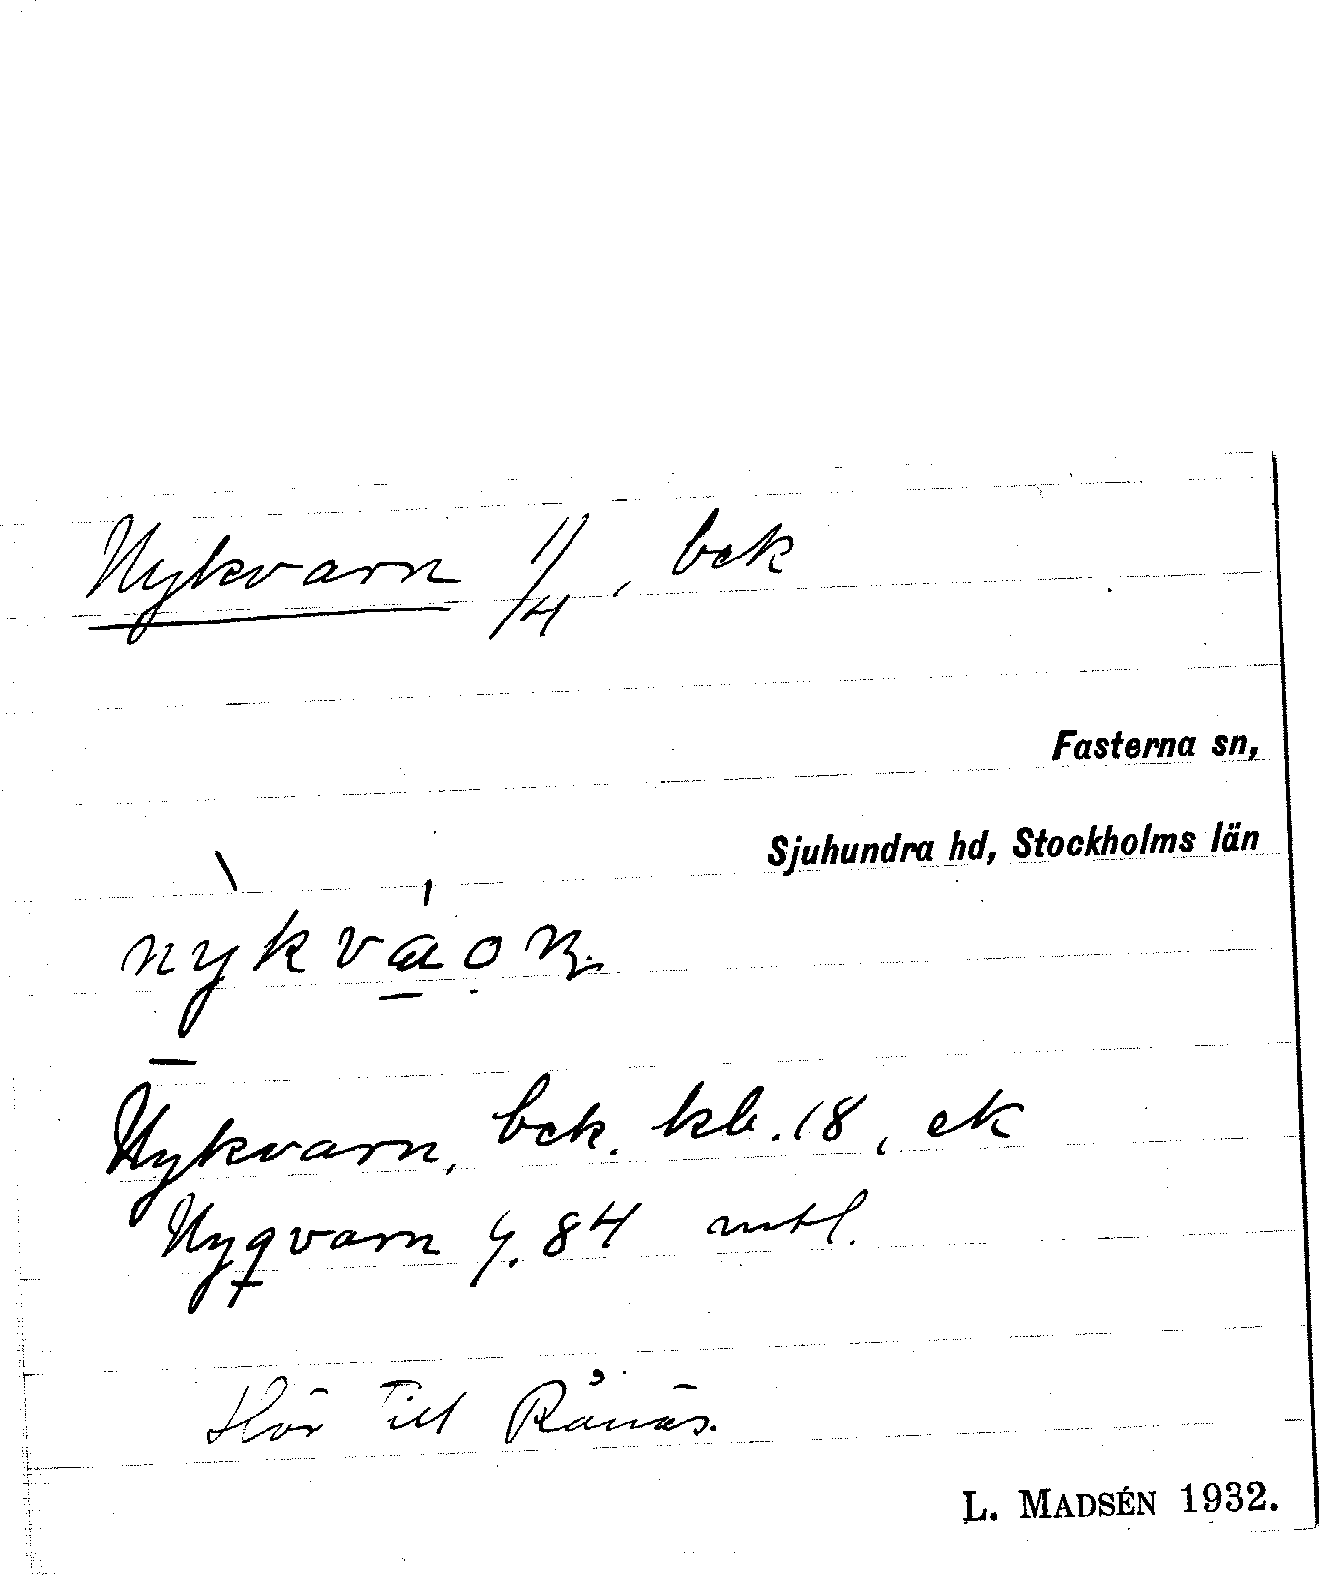 Nykvarn 11/4, bck
Fasterna sn,
Sjuhundra hd, Stockholms län
Nykvarn, bck. kb. 18, ek
Nyqvarn y. 84 mtl.
Hör till Rånäs.
L. MADSÉN 1932.